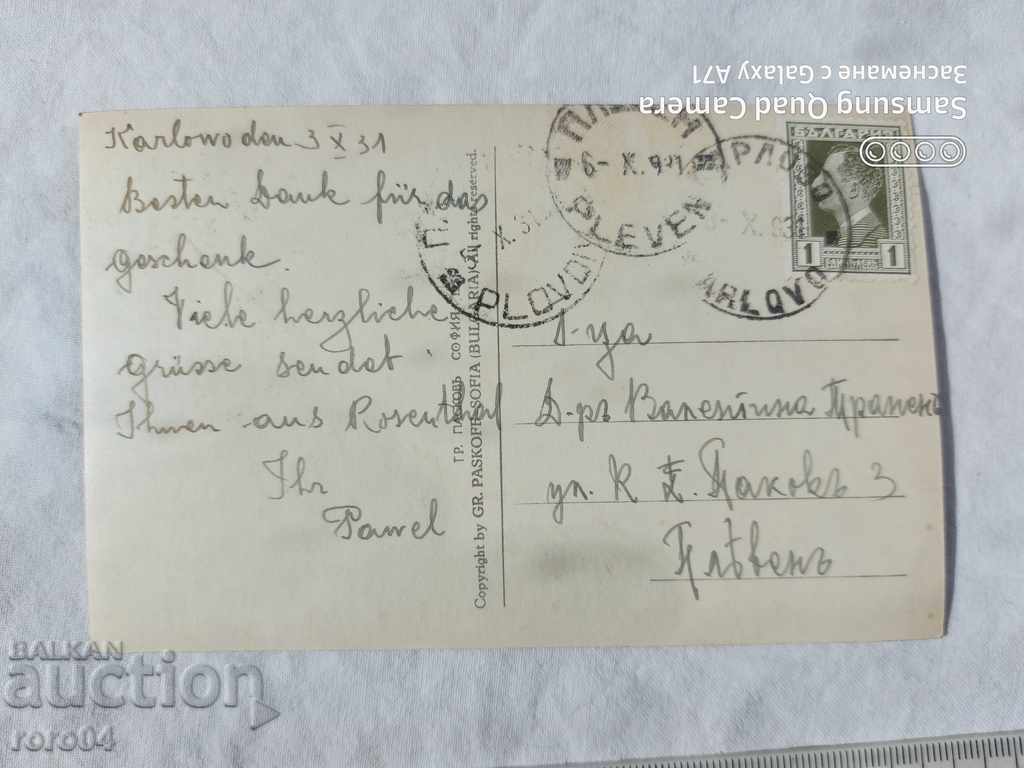 Karlowo den 3 X 31
Besten Dank für das
geschenk.
Viele herzliche
grüsse sendet
Ihnen aus Rosenthal
Ihr
Pawel
ГР. ПАСКОВЪ СОФИЯ
Copyright by GR. PASKOFF SOFIA (BULGARIA) All rights reserved.
ПЛѢВЕН
6- X. 931
PLEVEN
X. 31
PLOVDIV
КАРЛОВО
X. 931
KARLOVO
БЪЛГАРИЯ
1 1
Г-ца
Д-ръ Валентина
ул. К Г. Паковъ 3
Плѣвенъ
Samsung Quad Camera
Заснемане с Galaxy A71
BALKAN
auction
roro04